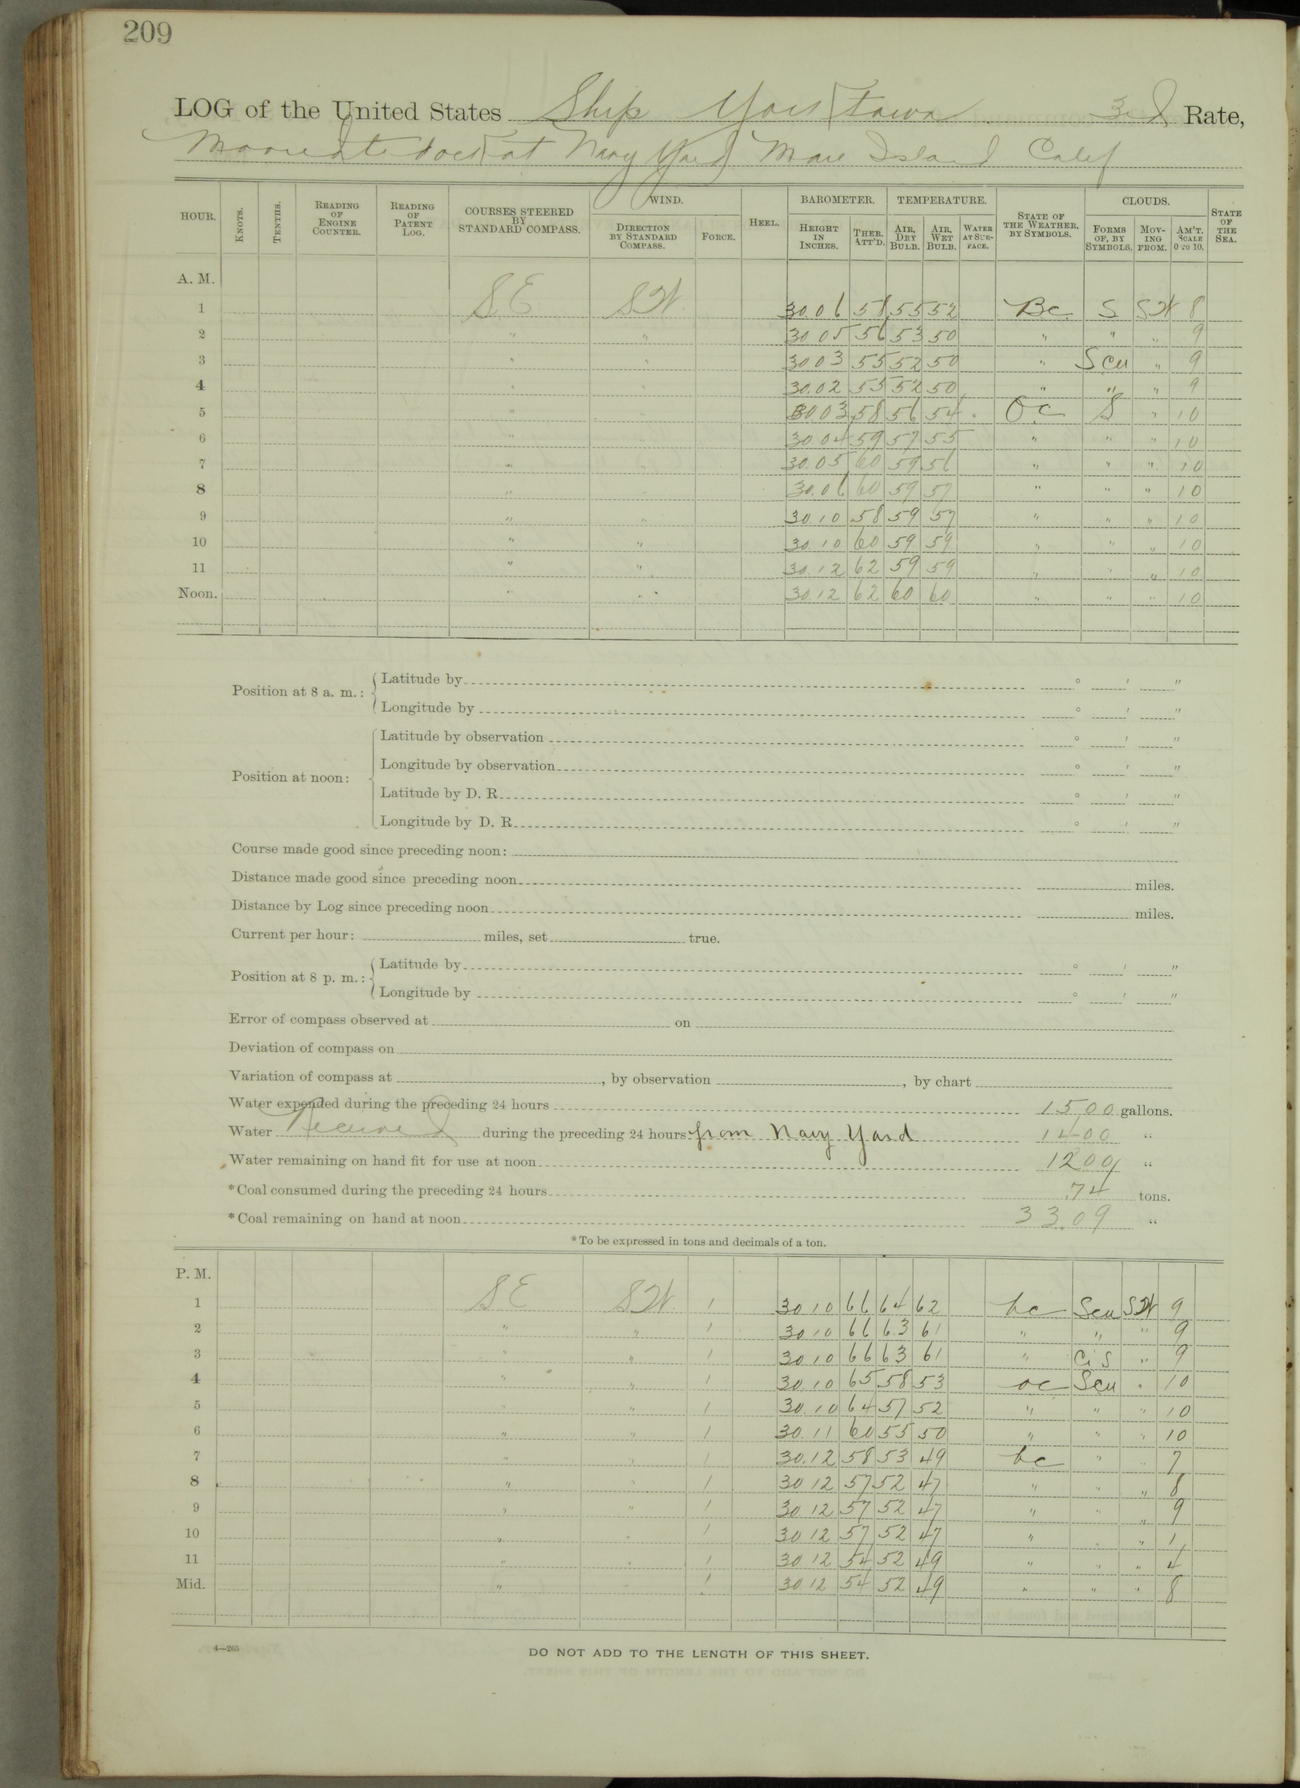 209
LOG of the United States Ship Yorktown 3rd Rate,
Moored to dock at Navy Yard Mare Island Calif
HOUR. KNOTS. TENTHS. READING OF ENGINE COUNTER. READING OF PATENT LOG. COURSES STEERED BY STANDARD COMPASS. WIND. DIRECTION BY STANDARD COMPASS. FORCE. HEEL. BAROMETER. HEIGHT IN INCHES. THER. ATT'D. TEMPERATURE. AIR, DRY BULB. AIR, WET BULB. WATER AT SURFACE. STATE OF THE WEATHER, BY SYMBOLS. CLOUDS. FORMS OF, BY SYMBOLS. MOVING FROM. AM'T. SCALE 0 TO 10. STATE OF THE SEA.
A. M.
1 SE SW 30.06 58 55 52 Bc S SW 8
2 " " 30 05 56 53 50 " " " 9
3 " " 30 03 55 52 50 " Scu " 9
4 " " 30.02 55 52 50 " " " 9
5 " " 30 03 58 56 54 Oc S " 10
6 " " 30.04 59 57 55 " " " 10
7 " " 30.05 60 59 56 " " " 10
8 " " 30.06 60 59 57 " " " 10
9 " " 30 10 58 59 57 " " " 10
10 " " 30.10 60 59 59 " " " 10
11 " " 30.12 62 59 59 " " " 10
Noon. " " 30.12 62 60 60 " " " 10
Position at 8 a. m.: Latitude by ° ' "
Longitude by ° ' "
Position at noon: Latitude by observation ° ' "
Longitude by observation ° ' "
Latitude by D. R. ° ' "
Longitude by D. R. ° ' "
Course made good since preceding noon:
Distance made good since preceding noon miles.
Distance by Log since preceding noon miles.
Current per hour: miles, set true.
Position at 8 p. m.: Latitude by ° ' "
Longitude by ° ' "
Error of compass observed at on
Deviation of compass on
Variation of compass at , by observation , by chart
Water expended during the preceding 24 hours 1500 gallons.
Water Received during the preceding 24 hours from Navy Yard 1400 "
Water remaining on hand fit for use at noon 1200 "
*Coal consumed during the preceding 24 hours .74 tons.
*Coal remaining on hand at noon 33.09 "
*To be expressed in tons and decimals of a ton.
P. M.
1 SE SW 1 30 10 66 64 62 bc Scu SW 9
2 " " 1 30 10 66 63 61 " " " 9
3 " " 1 30 10 66 63 61 " Ci S " 9
4 " " 1 30.10 65 58 53 oc Scu " 10
5 " " 1 30.10 64 57 52 " " " 10
6 " " 1 30.11 60 55 50 " " " 10
7 " " 1 30.12 58 53 49 bc " " 7
8 " " 1 30 12 57 52 47 " " " 8
9 " " 1 30 12 57 52 47 " " " 9
10 " " 1 30 12 57 52 47 " " " 1
11 " " 1 30 12 54 52 49 " " " 4
Mid. " " 1 30 12 54 52 49 " " " 8
4—265
DO NOT ADD TO THE LENGTH OF THIS SHEET.